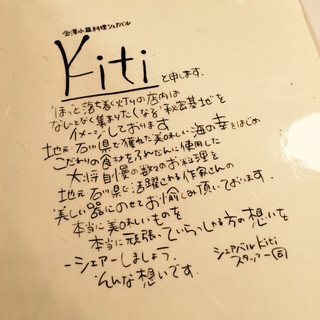 金澤小皿料理シェアバル
Kiti と申します.
ほっと落ち着く灯りの店内は
なんとなく集まりたくなる秘密基地を
イメージしております
地元・石川県で獲れた美味しい海の幸をはじめ
こだわりの食材をふんだんに使用した
大将自慢の数々のお料理を
地元石川県で活躍される作家さんの
美しい器にのせてお愉しみ頂いております.
本当に美味しいものを
本当に頑張っていらっしゃる方の想いを
-シェアーしましょう.
そんな想いです.
シェアバル Kiti
スタッフ一同